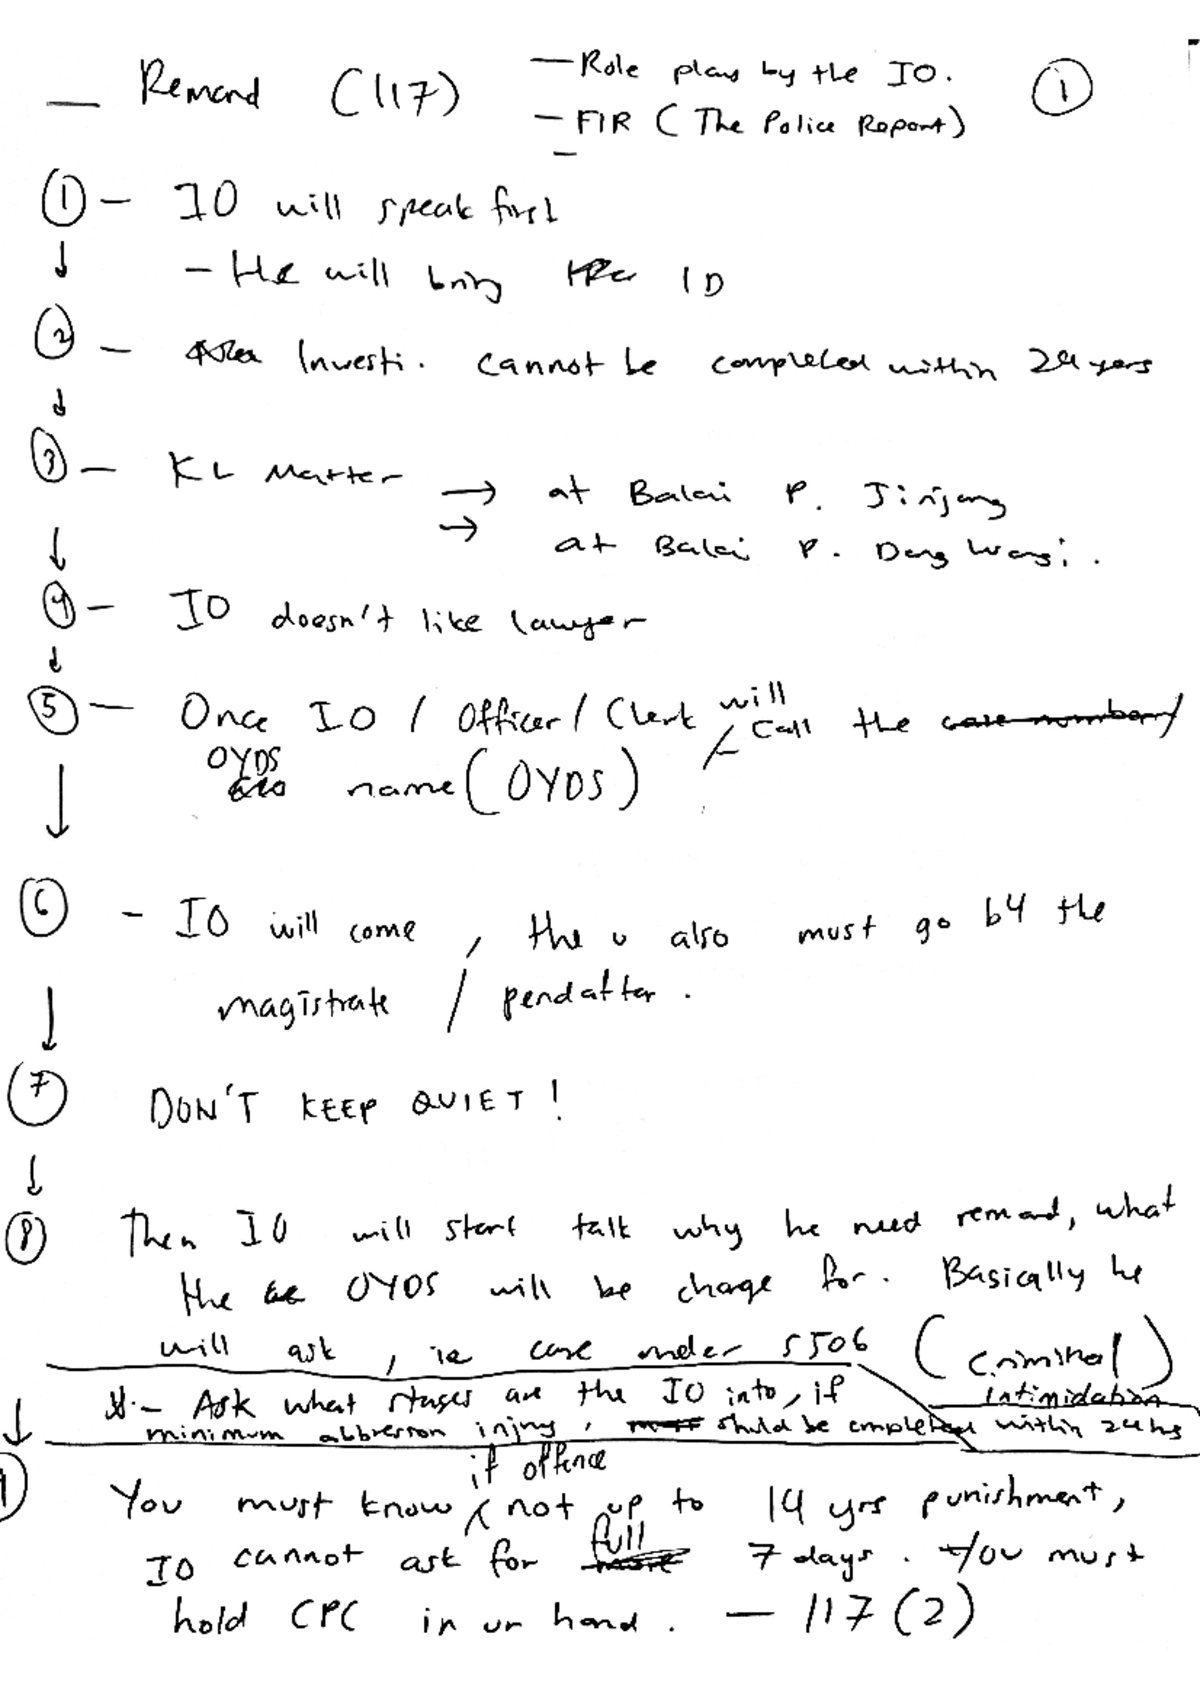 — Remand (117)
— Role plays by the IO.
— FIR (The Police Report)
—
①
① — IO will speak first
↓
— He will bring ID
② — Investi. cannot be completed within 24 yers
↓
③ — KL Matter → at Balai P. Jinjang
→ at Balai P. Dang Wangi.
↓
④ — IO doesn't like lawyer
↓
⑤ — Once IO / Officer / Clerk will call the case number/
OYDS name (OYDS)
↓
⑥ - IO will come, the u also must go b4 the
magistrate / pendaftar.
↓
⑦ DON'T KEEP QUIET!
↓
⑧ Then IO will start talk why he need remand, what
the OYDS will be charge for. Basically he
will ask, ie case under S506 (Criminal Intimidation)
— Ask what stages are the IO into, if
minimum abbresion injury, should be completed within 24 hrs
↓
You must know if offence not up to 14 yrs punishment,
IO cannot ask for full 7 days. You must
hold CPC in ur hand. — 117 (2)